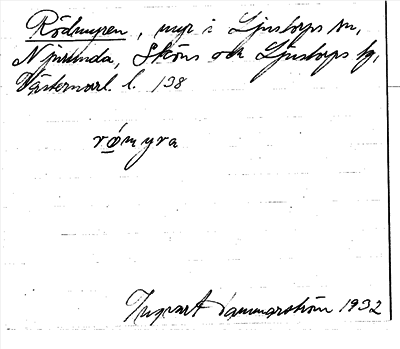 Rödmyren, myr i Ljustorps sn,
Njurunda, Sköns och Ljustorps tg,
Västernorrl. l. 138
rǿmyra
Ingvart Hammarström 1932